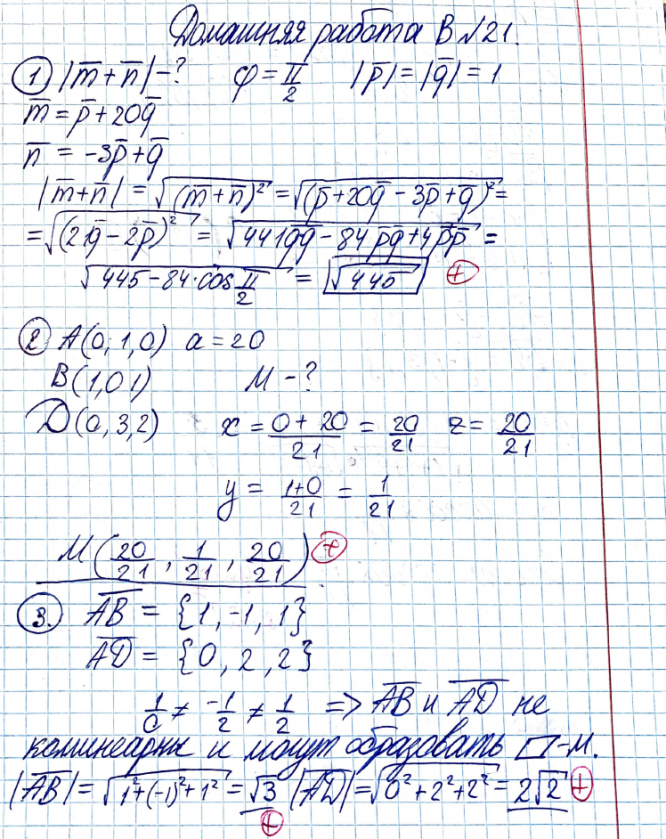 Домашняя работа В №21.
① |m̅ + n̅| – ? φ = π/2 |p̅| = |q̅| = 1
m̅ = p̅ + 20q̅
n̅ = -3p̅ + q̅
|m̅ + n̅| = √(m̅ + n̅)² = √(p̅ + 20q̅ - 3p̅ + q̅)² =
= √(21q̅ - 2p̅)² = √441q̅q̅ - 84p̅q̅ + 4p̅p̅ =
√445 - 84·cos π/2 = √445 +
② A(0, 1, 0) a = 20
B(1, 0 1) М – ?
D(0, 3, 2) x = 0 + 20/21 = 20/21 z = 20/21
y = 1+0/21 = 1/21
М(20/21, 1/21, 20/21) +
③. A̅B̅ = {1, -1, 1}
A̅D̅ = {0, 2, 2}
1/0 ≠ -1/2 ≠ 1/2 => A̅B̅ и A̅D̅ не
коминеарны и могут образовать ▱-м.
|A̅B̅| = √1² + (-1)² + 1² = √3 |A̅D̅| = √0² + 2² + 2² = 2√2 +
+